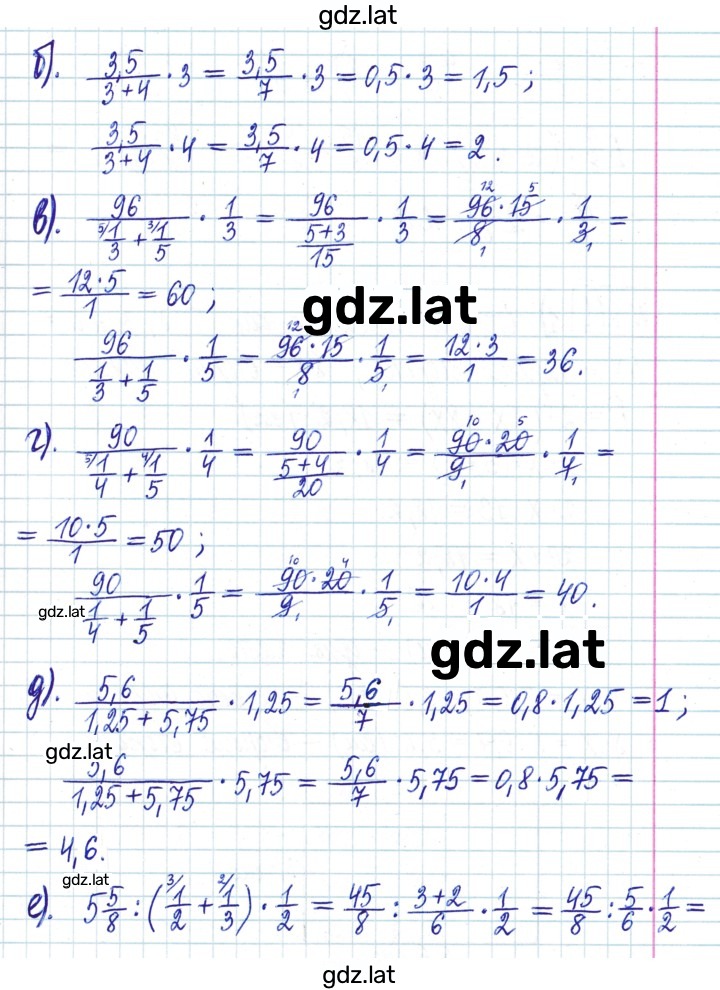 gdz.lat
б). 3,5/(3+4) · 3 = 3,5/7 · 3 = 0,5 · 3 = 1,5 ;
3,5/(3+4) · 4 = 3,5/7 · 4 = 0,5 · 4 = 2 .
в). 96/(⁵⁾1/3 + ³⁾1/5) · 1/3 = 96/((5+3)/15) · 1/3 = (96 12 · 15 5)/(8 1) · 1/(3 1) =
= (12·5)/1 = 60 ;
gdz.lat
96/(1/3 + 1/5) · 1/5 = (96 12 · 15)/(8 1) · 1/(5 1) = (12·3)/1 = 36.
г). 90/(⁵⁾1/4 + ⁴⁾1/5) · 1/4 = 90/((5+4)/20) · 1/4 = (90 10 · 20 5)/(9 1) · 1/(4 1) =
= (10·5)/1 = 50 ;
90/(1/4 + 1/5) · 1/5 = (90 10 · 20 4)/(9 1) · 1/(5 1) = (10·4)/1 = 40.
gdz.lat
gdz.lat
д). 5,6/(1,25 + 5,75) · 1,25 = 5,6/7 · 1,25 = 0,8 · 1,25 = 1 ;
gdz.lat
5,6/(1,25 + 5,75) · 5,75 = 5,6/7 · 5,75 = 0,8 · 5,75 =
= 4,6.
gdz.lat
е). 5 5/8 : (³⁾1/2 + ²⁾1/3) · 1/2 = 45/8 : (3+2)/6 · 1/2 = 45/8 : 5/6 · 1/2 =
gdz.lat